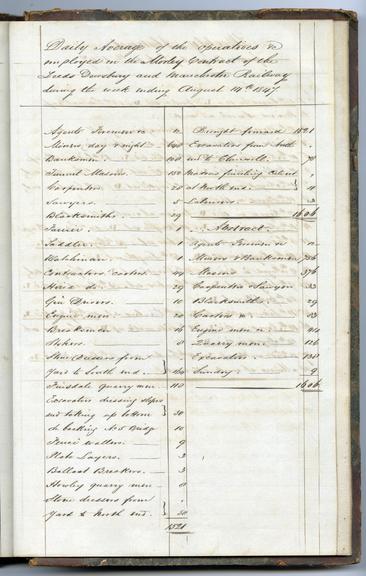 Daily Average of the operatives &c
employed in the Morley Contract of the
Leeds Dewsbury and Manchester Railway
during the week ending August 14th 1847
Agents Foremen &c 11
Miners day & night 640
Banksmen 100
Tunnel Masons 150
Carpenters 20
Sawyers 5
Blacksmiths 29
Farrier 1
Saddler 1
Watchman 1
Contractors carters 44
Horse do
Gin Drivers 10
Engine men 20
Brakesmen 16
Stokers 8
Stone Dressers from
Yard to South end
Farnsdale quarry men 110
Excavators dressing slopes
and taking up bottom 30
do backing No 5 Bridge 10
Fence wallers 9
Plate Layers 3
Ballast Breakers 3
Howley quarry men 8
Stone dressers from
Yard to North end 50
1521
Brought forward 1521
Excavators from North
end to Churwell 70
Masons finishing Culvert
at North end 11
Labourers 3
1606
Abstract
Agents Foremen &c 11
Miners & Banksmen 756
Masons 376
Carpenters & Sawyers 33
Blacksmiths 29
Carters &c
Engine men &c 44
Quarry men 126
Excavators 138
Sundry 9
1606